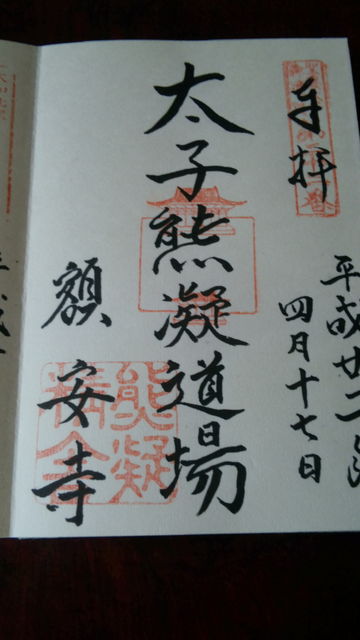 奉拝
平成廿二年
四月十七日
太子熊凝道場
額安寺
熊凝
精舎